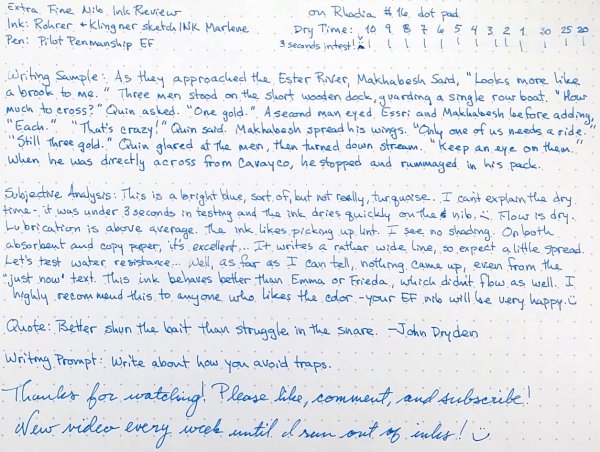 Extra Fine Nib Ink Review
on Rhodia #16 dot pad
Ink: Rohrer & Klingner sketchINK Marlene
Dry Time: 10 9 8 7 6 5 4 3 2 1 30 25 20
Pen: Pilot Penmanship EF
3 seconds in test!
Writing Sample: As they approached the Ester River, Makhabesh said, "Looks more like
a brook to me." Three men stood on the short wooden dock, guarding a single row boat. "How
much to cross?" Quin asked. "One gold." A second man eyed Essri and Makhabesh before adding,
"Each." "That's crazy!" Quin said. Makhabesh spread his wings. "Only one of us needs a ride."
"Still three gold." Quin glared at the men, then turned down stream. "Keep an eye on them."
When he was directly across from Cavayco, he stopped and rummaged in his pack.
Subjective Analysis: This is a bright blue, sort of, but not really, turquoise. I can't explain the dry
time - it was under 3 seconds in testing and the ink dries quickly on the nib. Flow is dry.
Lubrication is above average. The ink likes picking up lint. I see no shading. On both
absorbent and copy paper, it's excellent... It writes a rather wide line, so expect a little spread.
Let's test water resistance... Well, as far as I can tell, nothing came up, even from the
"just now" text. This ink behaves better than Emma or Frieda, which didn't flow as well. I
highly recommend this to anyone who likes the color - your EF nib will be very happy.
Quote: Better shun the bait than struggle in the snare. -John Dryden
Writing Prompt: Write about how you avoid traps.
Thanks for watching! Please like, comment, and subscribe!
New video every week until I run out of inks!